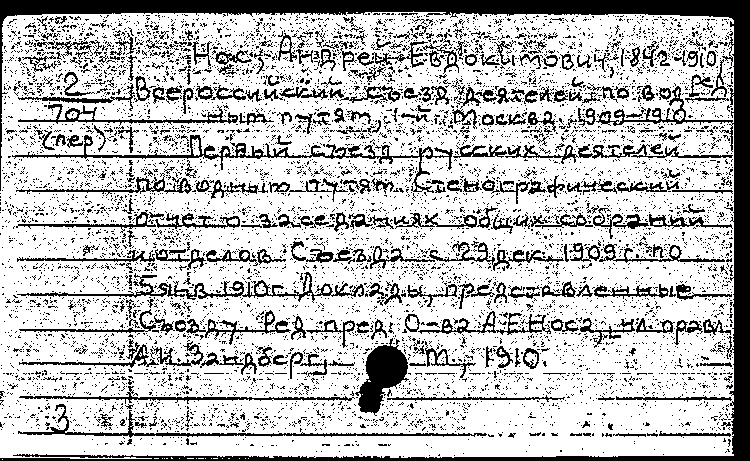 Нос, Андрей Евдокимович, 1842-1910, ред.
2/704 (пер) Всероссийский съезд деятелей по вод
ным путям, 1-й. Москва. 1909-1910.
Первый съезд русских деятелей
по водным путям. Стенографический
отчет о заседаниях общих собраний
и отделов Съезда с 29 дек. 1909 г. по
5 янв. 1910 г. Доклады, представленные
Съезду. Ред. пред. О-ва А.Е.Носа, чл. правл.
А.И. Зандберг, М., 1910.
3